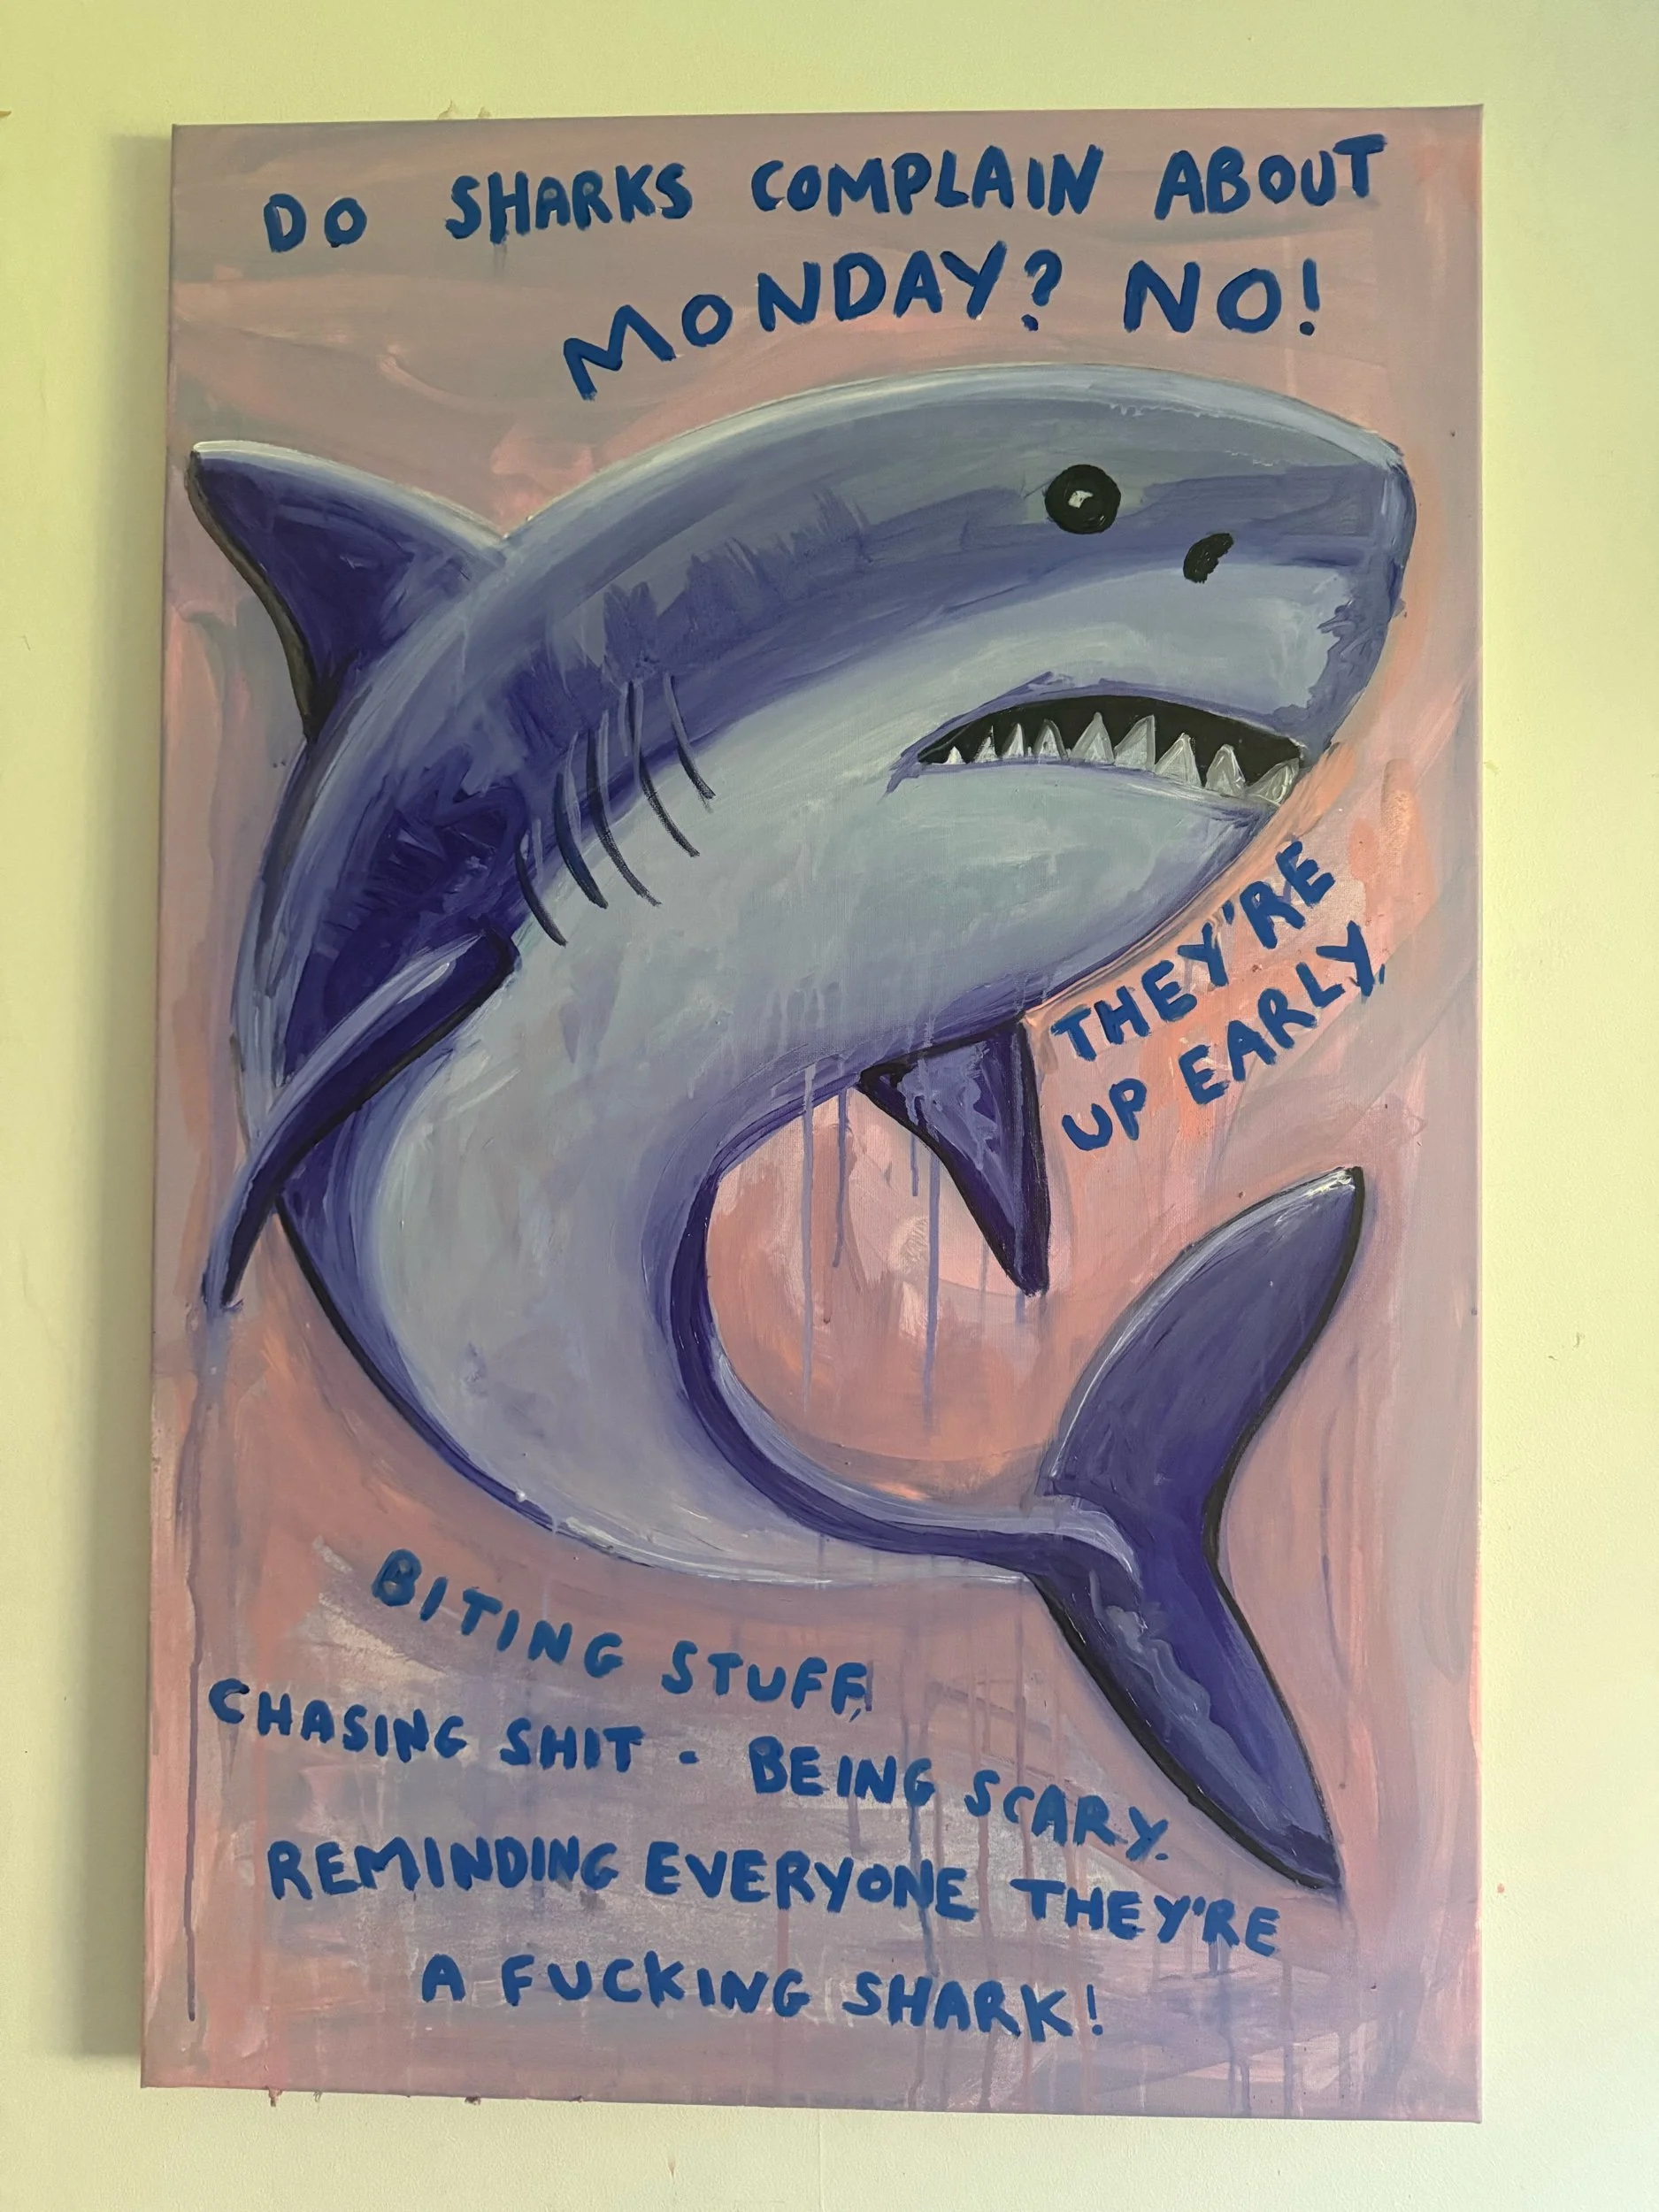 DO SHARKS COMPLAIN ABOUT
MONDAY? NO!
THEY'RE
UP EARLY,
BITING STUFF,
CHASING SHIT - BEING SCARY.
REMINDING EVERYONE THEY'RE
A FUCKING SHARK!